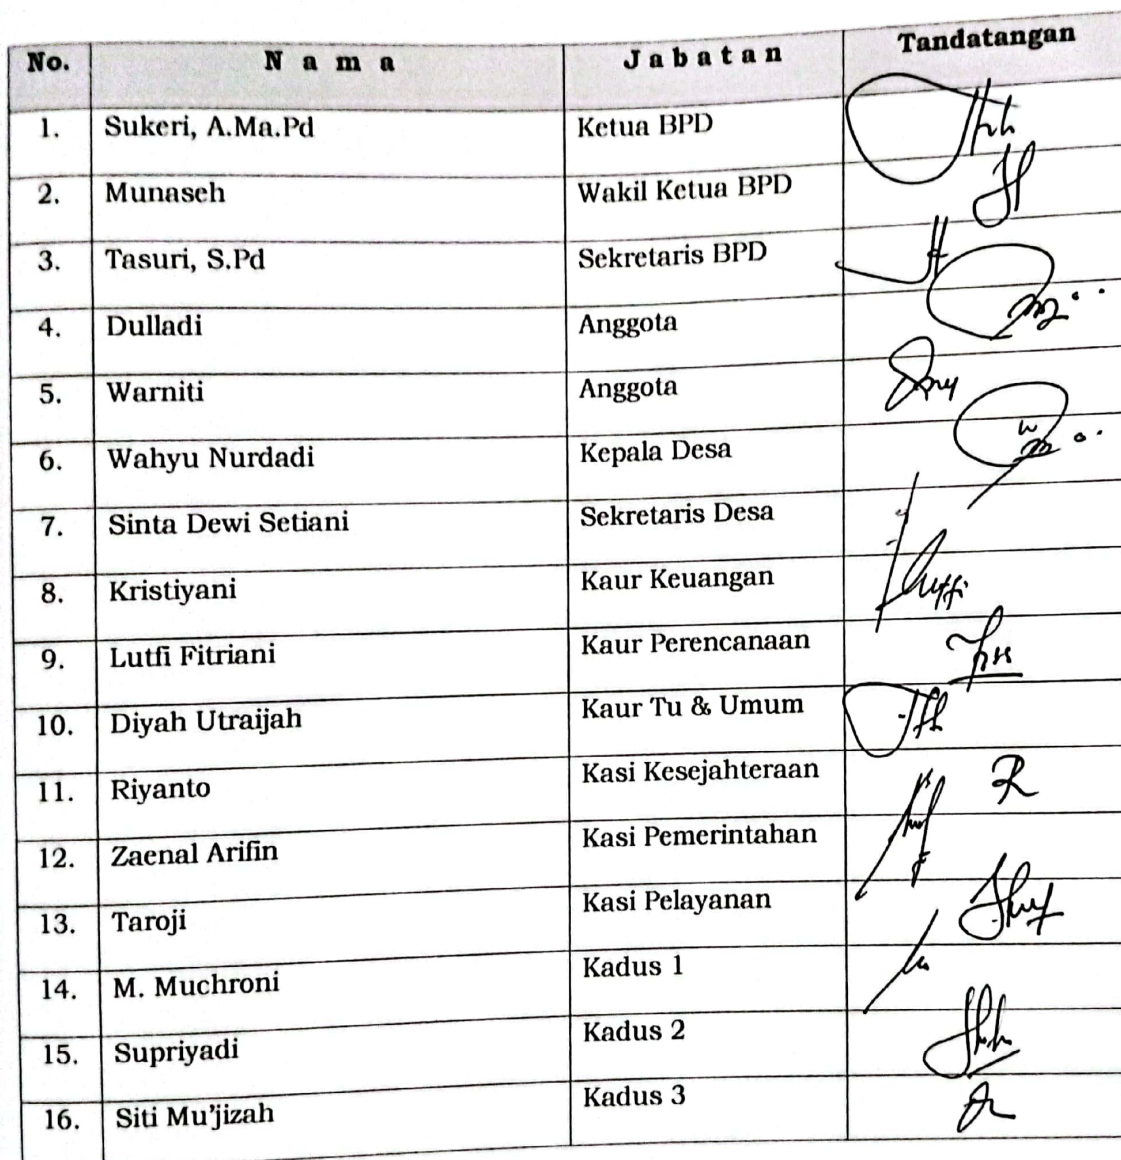 No. N a m a J a b a t a n Tandatangan
1. Sukeri, A.Ma.Pd Ketua BPD
2. Munaseh Wakil Ketua BPD
3. Tasuri, S.Pd Sekretaris BPD
4. Dulladi Anggota
5. Warniti Anggota
6. Wahyu Nurdadi Kepala Desa
7. Sinta Dewi Setiani Sekretaris Desa
8. Kristiyani Kaur Keuangan
9. Lutfi Fitriani Kaur Perencanaan
10. Diyah Utraijah Kaur Tu & Umum
11. Riyanto Kasi Kesejahteraan
12. Zaenal Arifin Kasi Pemerintahan
13. Taroji Kasi Pelayanan
14. M. Muchroni Kadus 1
15. Supriyadi Kadus 2
16. Siti Mu'jizah Kadus 3